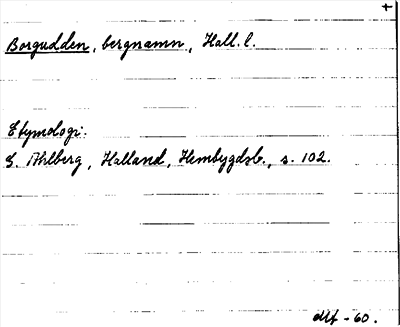 +
Borgudden, bergnamn, Hall. l.
Etymologi:
E. Ahlberg, Halland, Hembygdsb., s. 102.
-60.